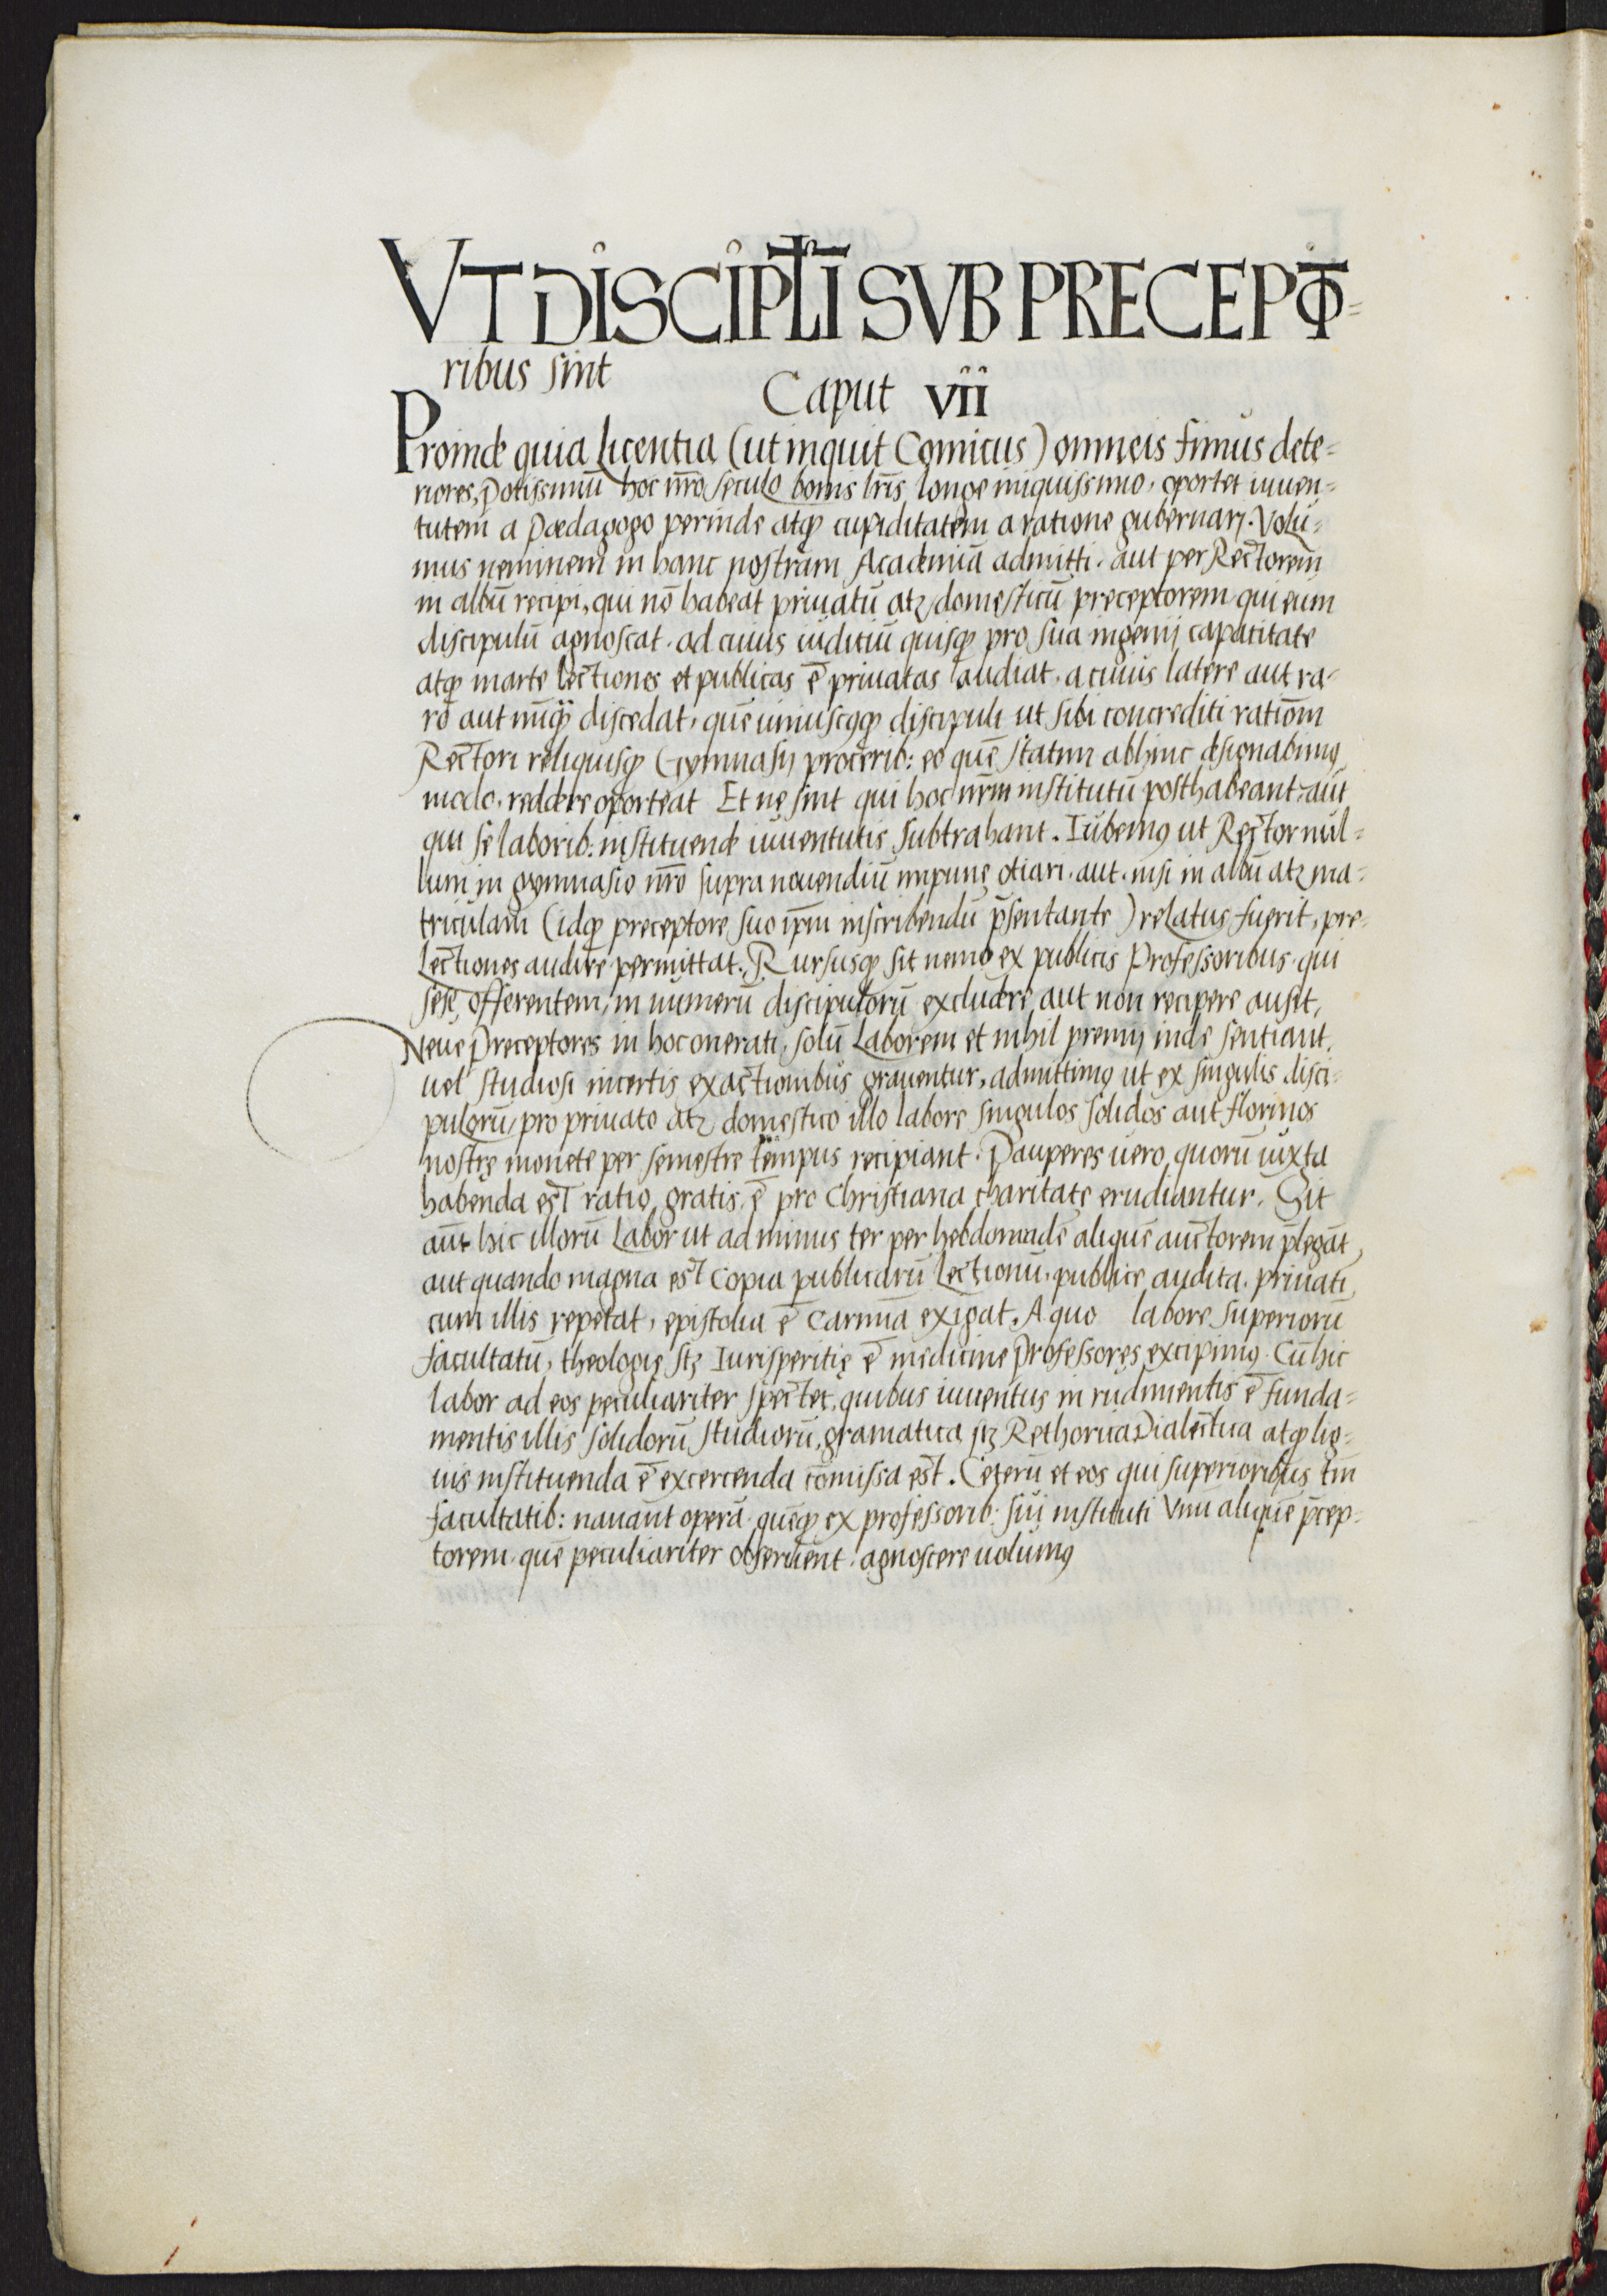 VT DISCIPL̄I SVB PRECEPTO=
ribus sint
Caput VII
Proinde quia Licentia (ut inquit Comicus) omneis fimus dete=
riores, potissimū hoc nr̄o seculo bonis lr̄is longe iniquissimo, oportet iuuen=
tutem a Pædagogo perinde atq̨ cupiditatem a ratione gubernari. Volu=
mus neminem in hanc nostram Academiā admitti, aut per Rectorem
in albū recipi, qui nō habeat priuatū atz domesticū preceptorem qui eum
discipulū agnoscat, ad cuius iuditiū quisq̨ pro sua ingenij capatitate
atq̨ marte lectiones et publicas ē priuatas audiat, a cuius latere aut ra-
ro aut nūq̨ discedat, quē uniuscq̨ discipuli ut sibi concrediti ratiōm
Rectori reliquisq̨ Gymnasij procerib: eo quē statim abhinc designabimꝰ
modo, reddere oporteat Et ne sint qui hoc nr̄m institutū posthabeant, aut
qui se laborib: instituende iuuentutis subtrahant. Iubemꝰ ut Rector nul=
lum in gymnasio nr̄o supra nouendiū impune otiari, aut, nisi in albū atz ma=
triculam (idq̨ preceptore suo ip̄m inscribendū p̄sentante) relatus fuerit, pre-
Lectiones audire permittat. Rursusq̨ sit nemo ex publicis Professoribus, qui
sese offerentem, in numerū discipulorū excludere aut non recipere ausit,
Neue Preceptores in hoc onerati, solū Laborem et nihil premij inde sentiant,
uel studiosi incertis exactionibus grauentur, admittimꝰ ut ex singulis disci=
pulorū, pro priuato atz domestico illo labore singulos solidos aut florinos
nostrę monete per semestre tempus recipiant. Pauperes uero, quorū iuxta
habenda est ratio, gratis, ē pro Christiana charitate erudiantur. Sit
aūt hic illorū Labor ut ad minus ter per hebdomadē aliquē auctorem p̄legāt,
aut quando magna est Copia publicarū Lectionū, publice audita, priuati
cum illis repetat, epistolia ē Carmina exigat. A quo labore superiorū
facultatū, theologię sz Iurisperitię ē medicine Professores excipimꝰ. Cū hic
labor ad eos peculiariter spectet, quibus iuuentus in rudimentis ē funda=
mentis illis solidorū studiorū, gramatica sz Rethorica Dialectica atq̨ lig=
uis instituenda ē excercenda cōmissa est. Ceterū et eos qui superioribus tm̄
facultatib: nauant operā, quēq̨ ex professorib: sui instituti Vnū aliquē p̄cep-
torem, quē peculiariter obseruent, agnoscere uolumꝰ